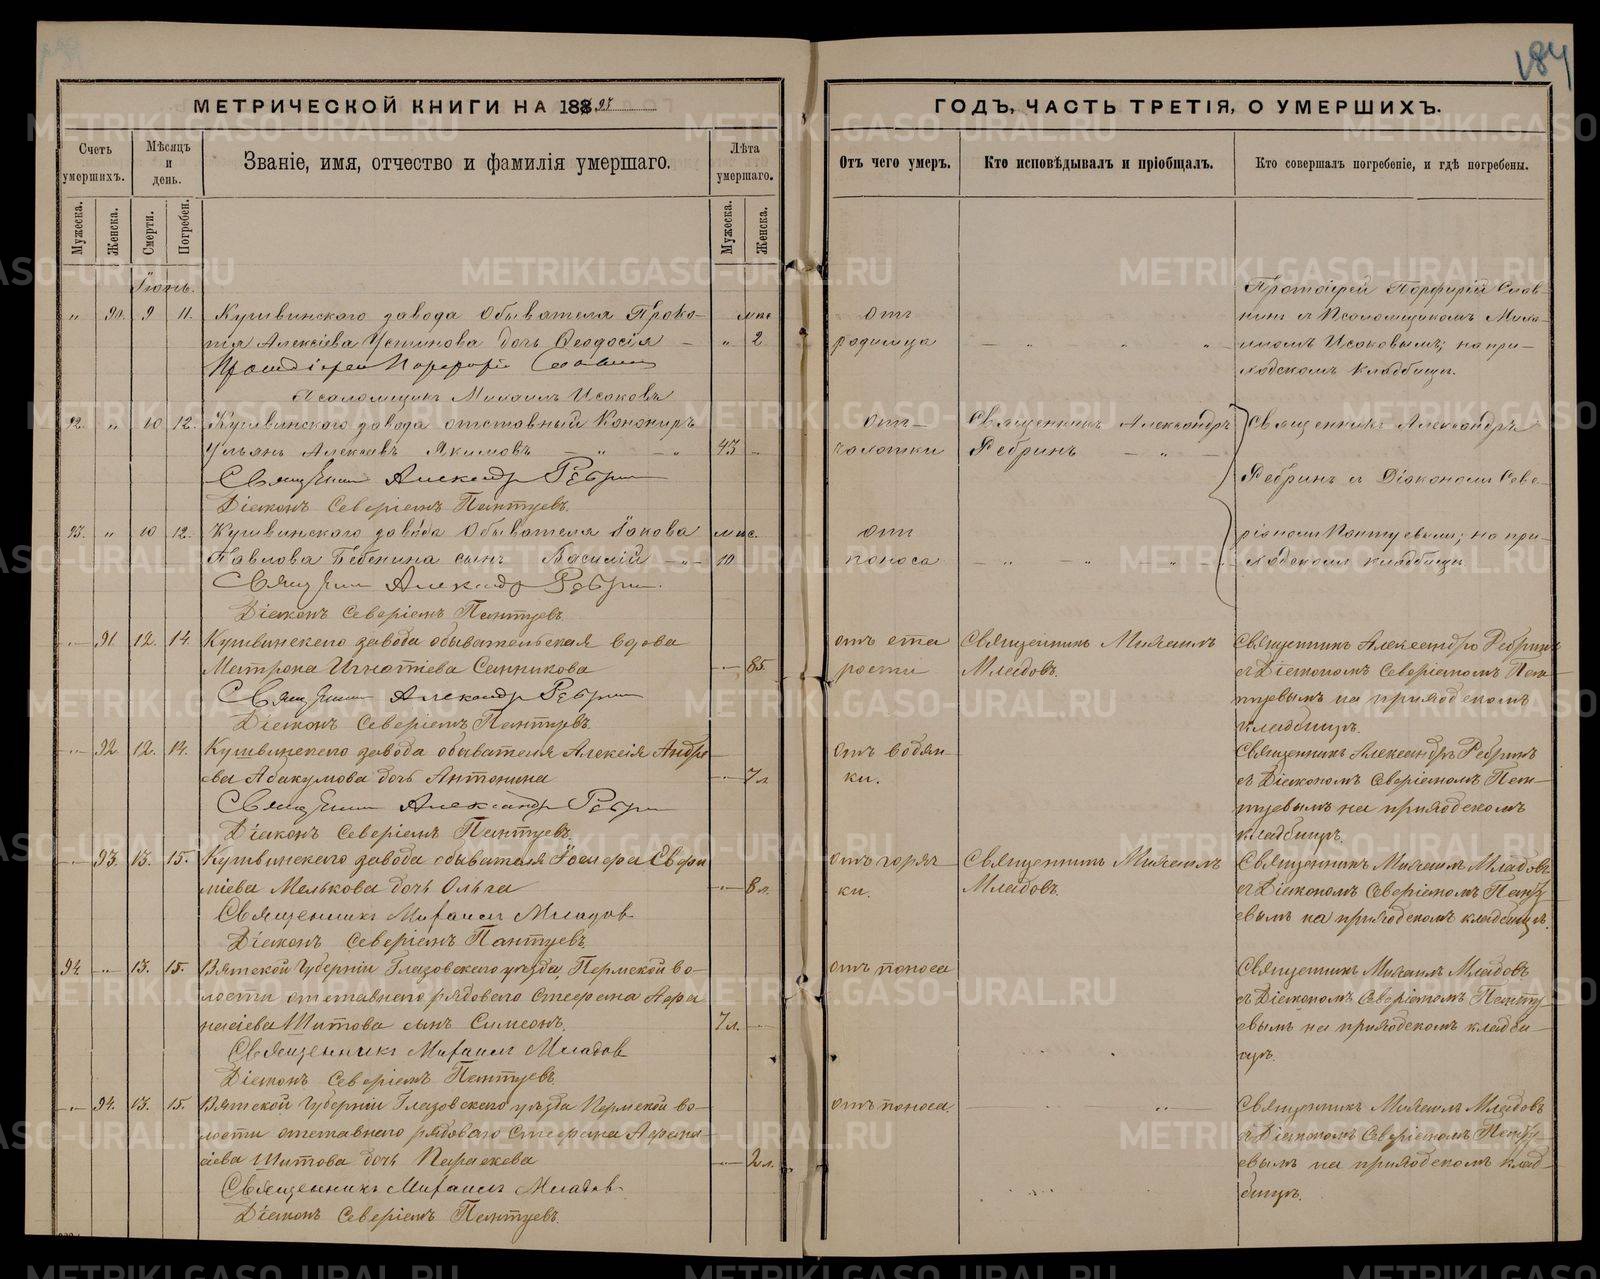 184
МЕТРИЧЕСКОЙ КНИГИ НА 188 97
ГОДЪ, ЧАСТЬ ТРЕТІЯ, О УМЕРШИХЪ.
Счетъ умершихъ.
Мѣсяцъ и день.
Званіе, имя, отчество и фамилія умершаго.
Лѣта умершаго.
Отъ чего умеръ.
Кто исповѣдывалъ и пріобщалъ.
Кто совершалъ погребеніе, и гдѣ погребены.
Мужеска.
Женска.
Смерти.
Погребен.
Мужеска.
Женска.
Іюнь.
" 90. 9 11. Кушвинскаго завода обывателя Проко-
пія Алексіева Устинова дочь Ѳеодосія — " 2 мѣс
Протоіерей Порфирій Славнинъ
Псаломщикъ Михаилъ Исаковъ
отъ
родимца
Протоіерей Порфирій Слав-
нинъ и Псаломщикомъ Миха-
иломъ Исаковымъ; на при-
ходскомъ кладбищѣ.
92. " 10 12. Кушвинскаго завода отставный Канониръ
Ульянъ Алексѣевъ Якимовъ 43 —
Священникъ Александръ Ребринъ
Діаконъ Северіанъ Пантуевъ.
отъ
чахотки
Священникъ Александръ
Ребринъ
Священникъ Александръ
Ребринъ и Діакономъ Севе-
93. " 10 12. Кушвинскаго завода обывателя Іакова
Павлова Бебенина сынъ Василій 10 мѣс.
Священникъ Александръ Ребринъ.
Діаконъ Северіанъ Пантуевъ
отъ
поноса
ріаномъ Пантуевымъ; на при-
ходскомъ кладбищѣ.
— 91. 12. 14. Кушвинскаго завода обывательская вдова
Матрона Игнатіева Санникова — 85
Священникъ Александръ Ребринъ
Діаконъ Северіанъ Пантуевъ.
отъ ста
рости
Священникъ Михаилъ
Младовъ.
Священникъ Александръ Ребринъ
съ Діакономъ Северіаномъ Пан-
туевымъ на приходскомъ
кладбищѣ.
— 92. 12. 14. Кушвинскаго завода обывателя Алексія Андре
ева Абакумова дочь Антонина — 7 л
Священникъ Александръ Ребринъ
Діаконъ Северіанъ Пантуевъ.
отъ водян
ки.
Священникъ Александръ Ребринъ
съ Діакономъ Северіаномъ Пан-
туевымъ на приходскомъ
кладбищѣ.
— 93. 13. 15. Кушвинскаго завода обывателя
міева Малькова дочь Ольга — 8 л.
Священникъ Михаилъ Младовъ
Діаконъ Северіанъ Пантуевъ.
отъ горяч
ки.
Священникъ Михаилъ
Младовъ.
Священникъ Михаилъ Младовъ
съ Діакономъ Северіаномъ Панту
евымъ на приходскомъ кладбищѣ.
94 — 13. 15. Вятской Губерніи Глазовскаго уѣзда, Пермской во-
лости отставнаго рядоваго Стефана Афа
насіева Шитова сынъ Симеонъ. 7 л. —
Священникъ Михаилъ Младовъ
Діаконъ Северіанъ Пантуевъ.
отъ поноса
Священникъ Михаилъ Младовъ
съ Діакономъ Северіаномъ Панту
евымъ на приходскомъ кладби-
щѣ.
— 94. 13. 15. Вятской Губерніи Глазовскаго уѣзда Пермской во-
лости отставнаго рядоваго Стефана Афана-
сіева Шитова дочь Параскева — 2 л.
Священникъ Михаилъ Младовъ.
Діаконъ Северіанъ Пантуевъ.
отъ поноса.
Священникъ Михаилъ Младовъ
съ Діакономъ Северіаномъ Панту-
евымъ на приходскомъ клад-
бищѣ.
METRIKI.GASO-URAL.RU